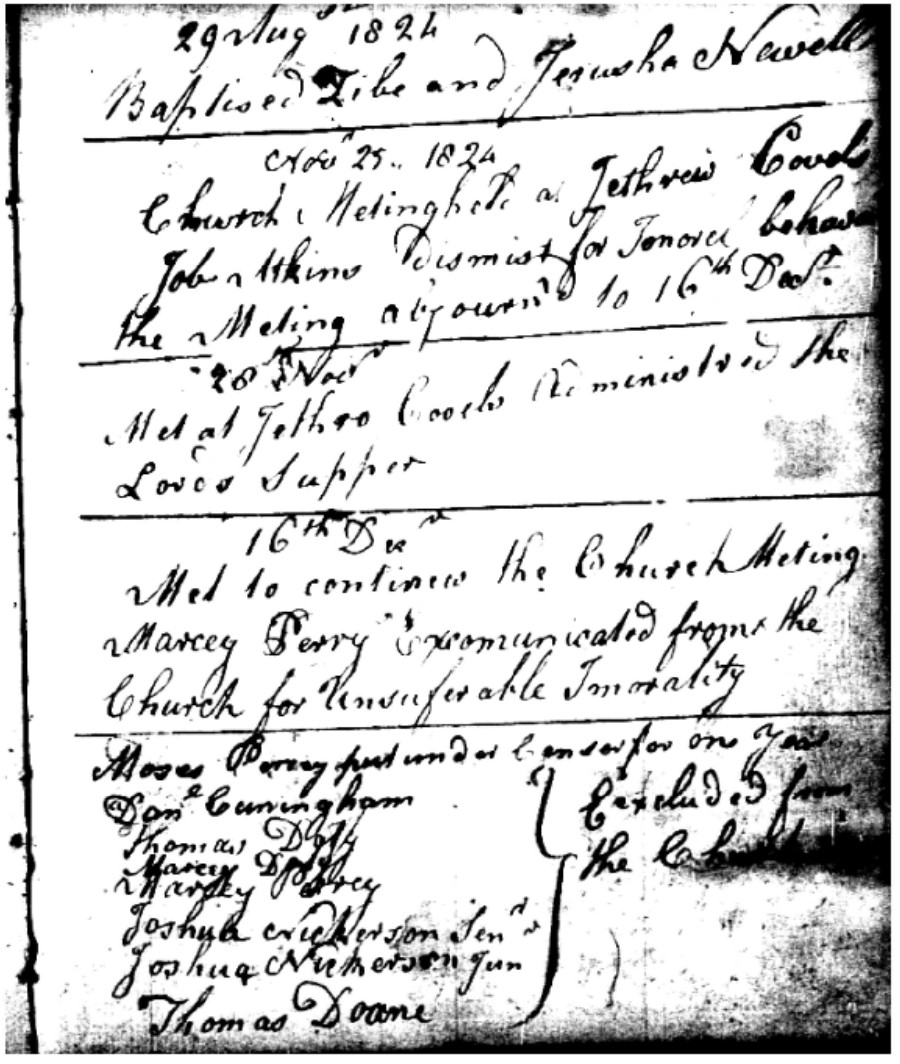 29 Aug 1824
Baptised Zibe and Jerusha Newell
Novr 25.. 1824
Church Meting held at Jethrew Covels
Job Atkins Dismist for behave
the Meting abjournd to 16th Decr.
28th Novr
Met at Jethro Coovls Administred the
Lords Supper
16th Decr
Met to continew the Church Meting
Marcey Perry Excomunicated from the
Church for Unsuferable Imorality
Moses Perrey put under Censer for one Year
Danel Cuningham
Thomas Doty
Marcey Doty
Marcey Perrey
Joshua Nickerson Senr
Joshua Nickerson Jun
Thomas Doane
Excluded from
the Church